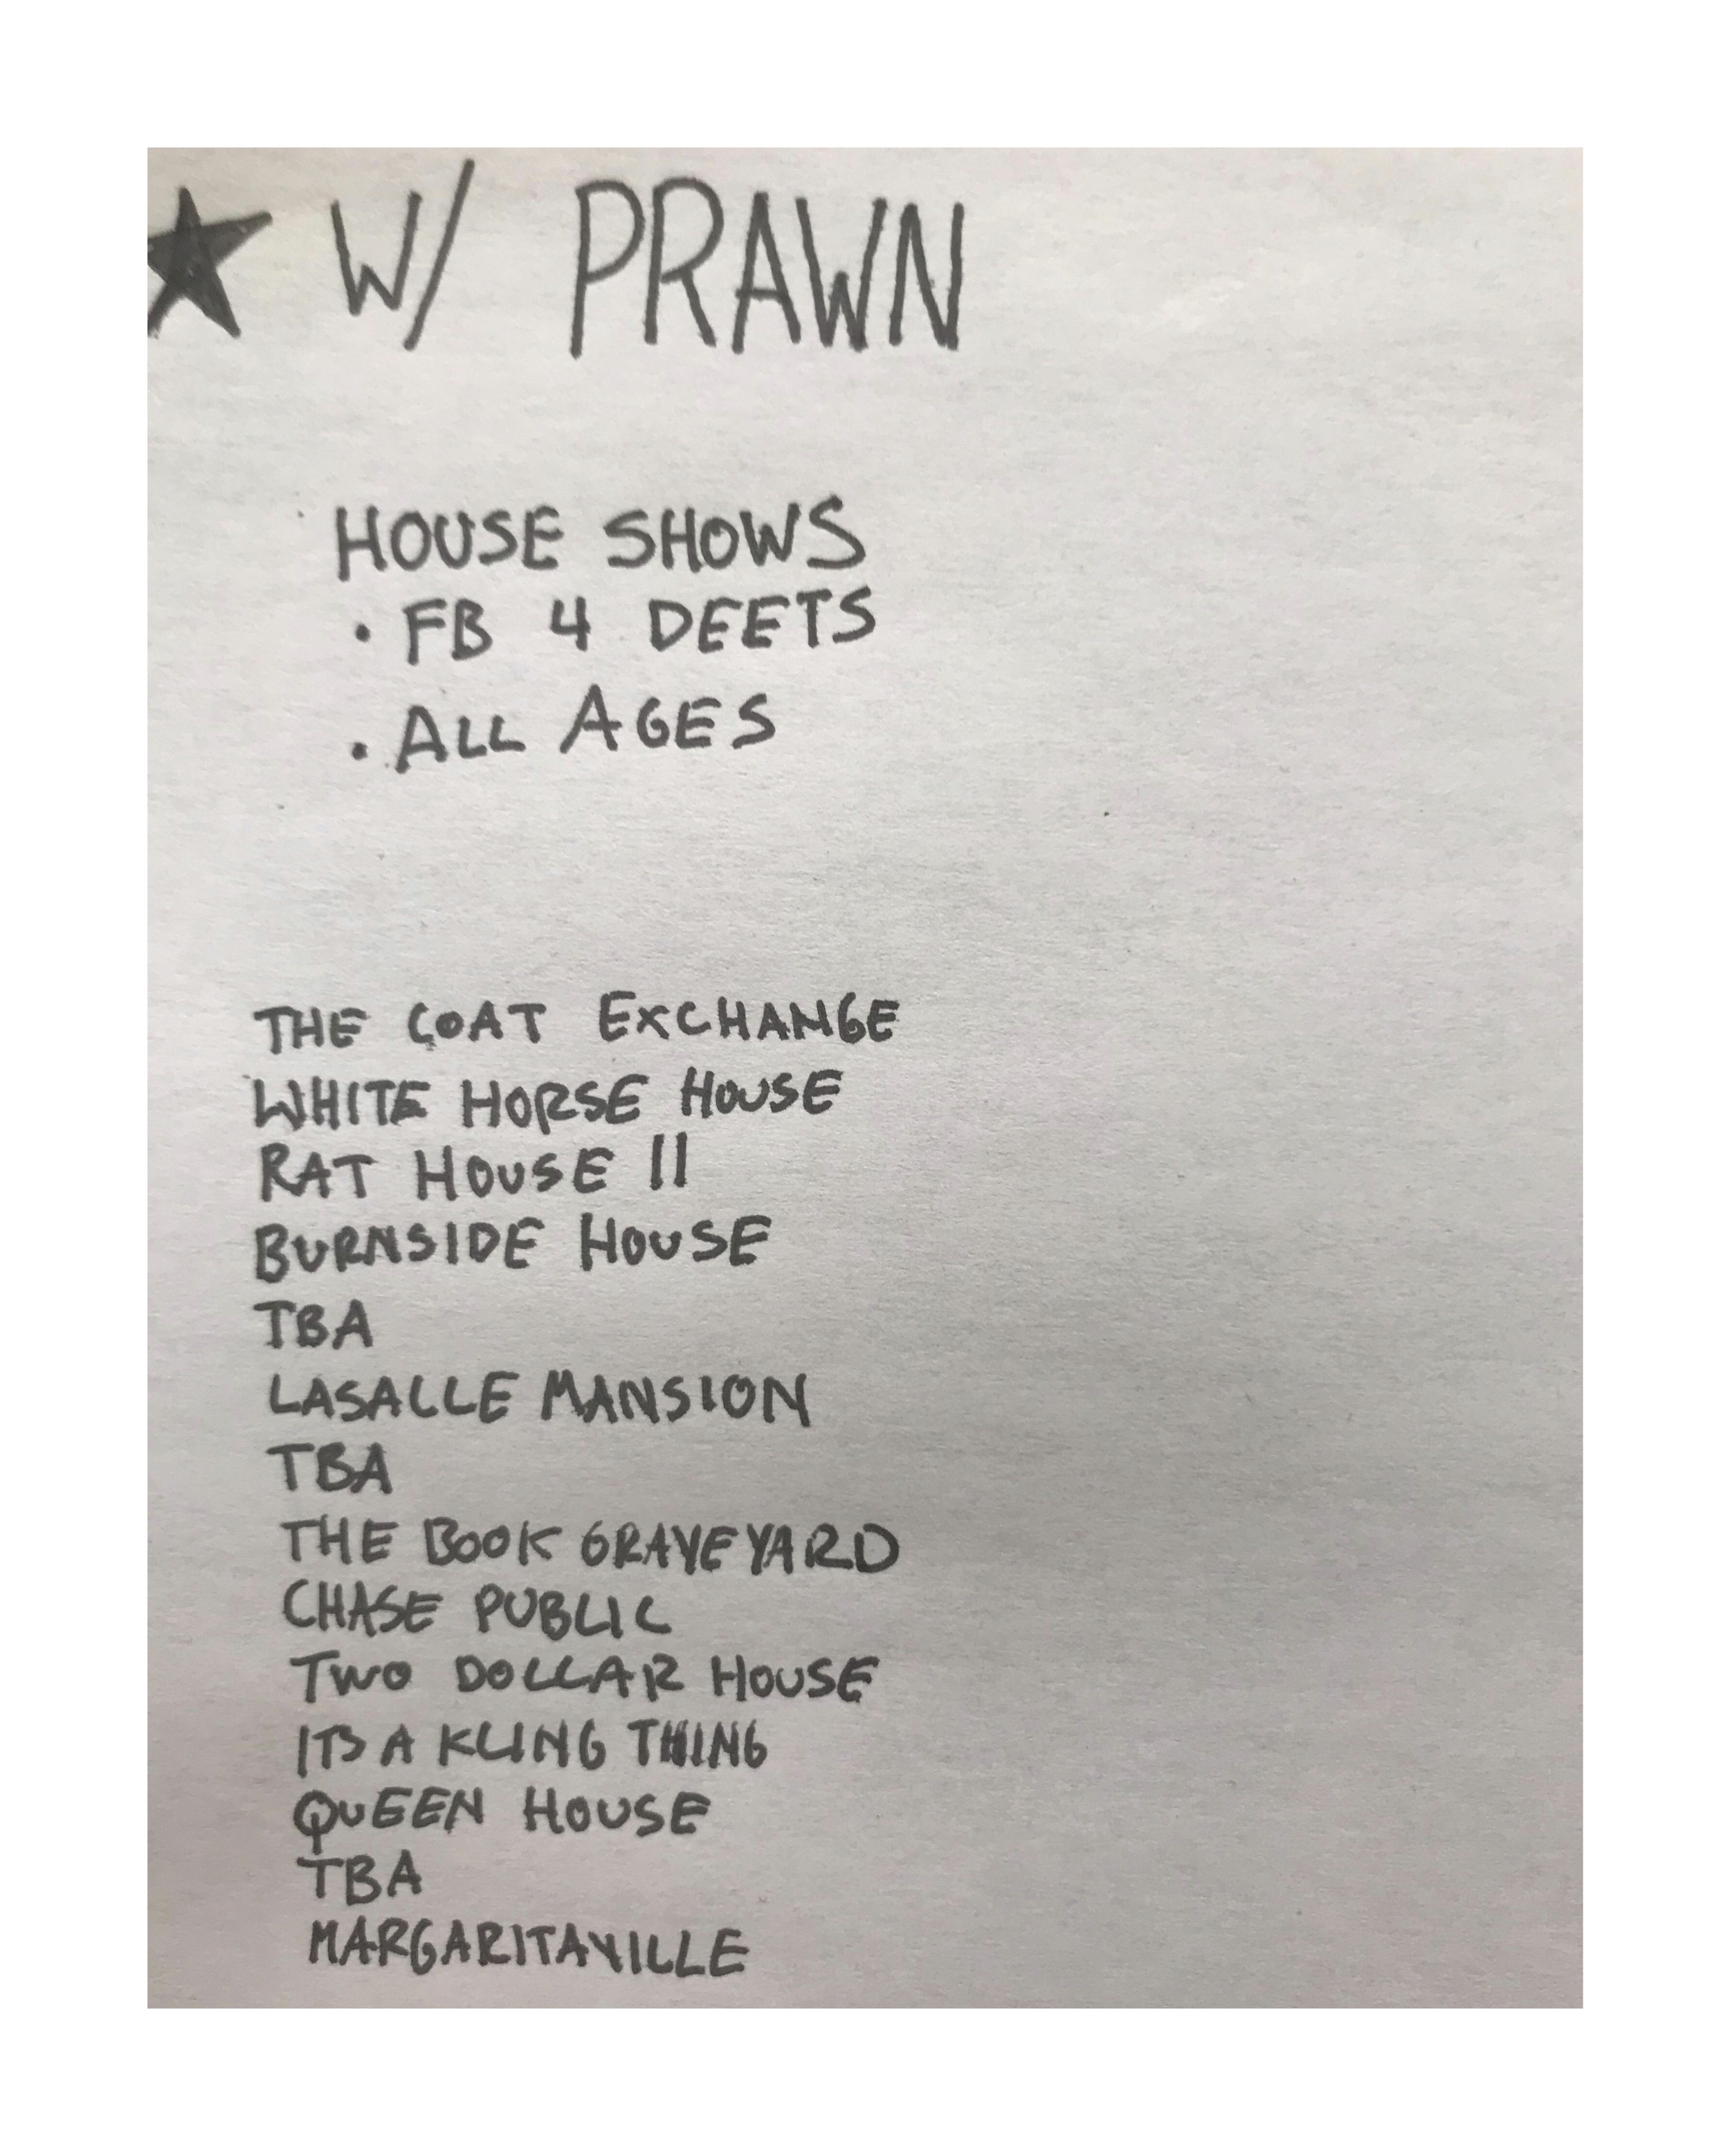 ★ W/ PRAWN
HOUSE SHOWS
• FB 4 DEETS
• ALL AGES
THE COAT EXCHANGE
WHITE HORSE HOUSE
RAT HOUSE II
BURNSIDE HOUSE
TBA
LASALLE MANSION
TBA
THE BOOK GRAVEYARD
CHASE PUBLIC
TWO DOLLAR HOUSE
ITS A KLING THING
QUEEN HOUSE
TBA
MARGARITAVILLE